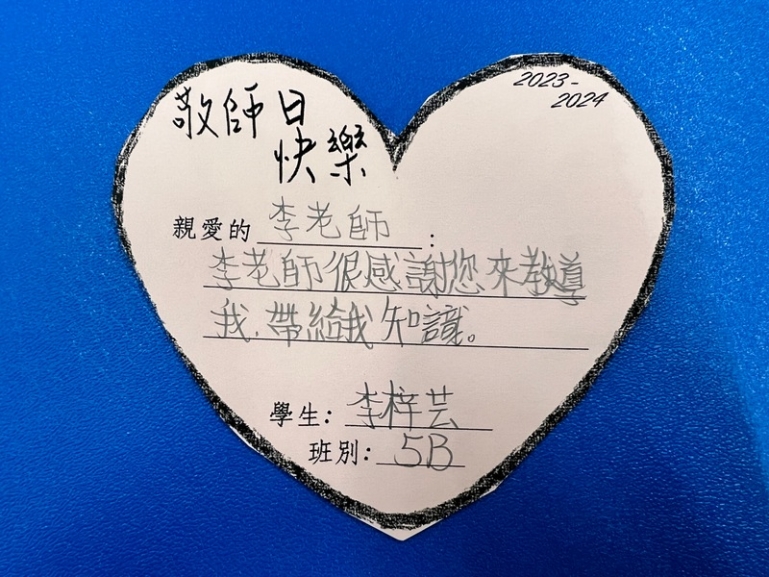 敬師日
快樂
2023-
2024
親愛的 李老師:
李老師很感謝您來教導
我,帶給我知識。
學生: 李梓芸
班別: 5B